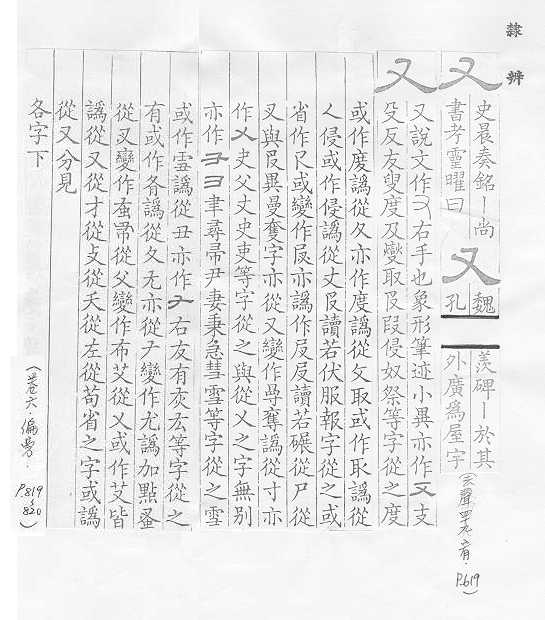 隸辨
又 史晨奏銘丨尚
書考靈曜曰 又 魏孔
羨碑丨於其
外廣為屋字
(去聲四九宥. P.619)
又 又說文作 右手也象形筆迹小異亦作又支
殳反友叟度及燮取𠬝叚侵奴祭等字從之度
或作度譌從夂亦作度譌從攵取或作取譌從
人侵或作侵譌從丈𠬝讀若伏服報字從之或
省作卩或變作𠬝亦譌作𠬝反讀若碾從尸從
又與𠬝異曼奪字亦從又變作尋奪譌從寸亦
作乂史父丈史吏等字從之與從乂之字無別
亦作彐彐聿尋帚尹妻秉急彗雪等字從之雪
或作雪譌從丑亦作𠂇右友有灰厷等字從之
有或作各譌從夂尤亦從𠂇變作尤譌加點蚤
從叉變作蚤帚從父變作布艾從乂或作艾皆
譌從又從才從攴從夭從左從苟省之字或譌
從又分見
各字下
(卷六.偏旁. P.819~820)